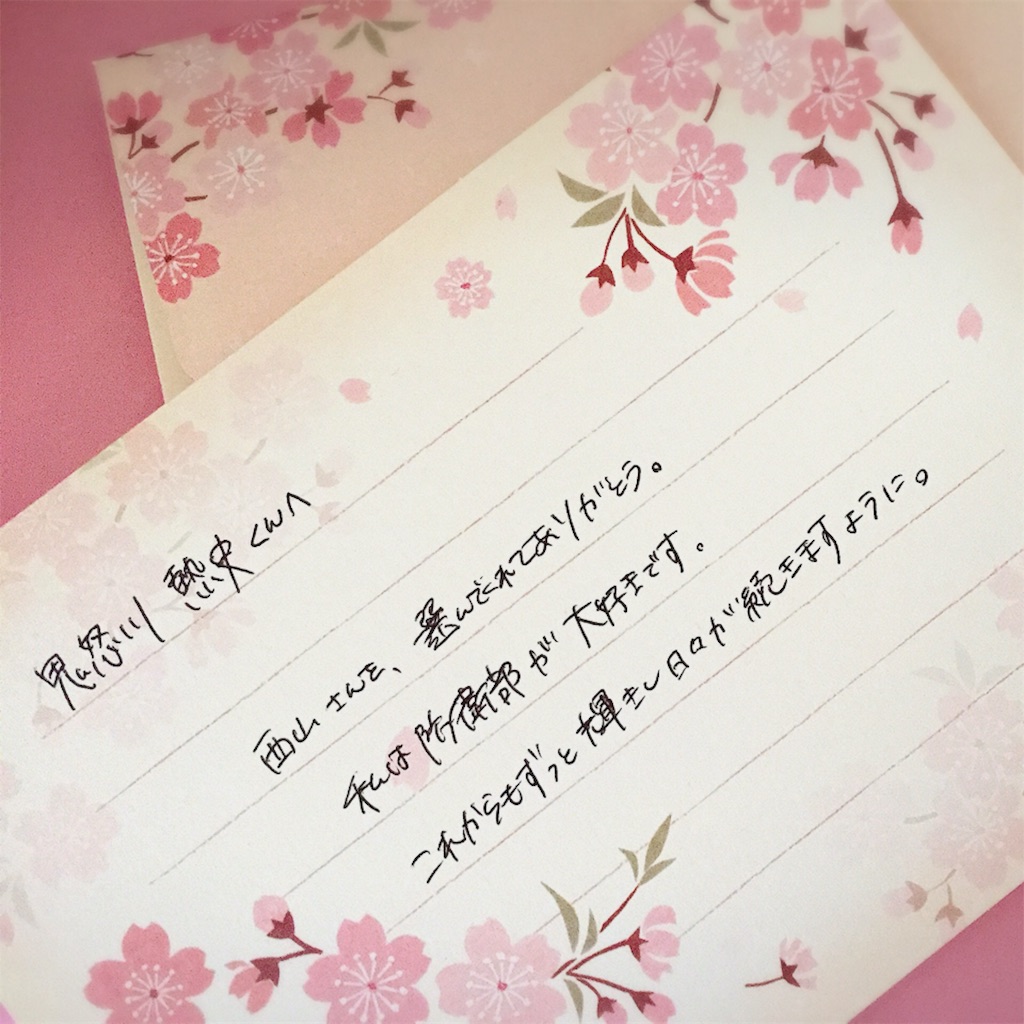 鬼怒川 熱史くんへ
西山さんを、選んでくれてありがとう。
私は防衛部が大好きです。
これからもずっと輝きし日々が続きますように。